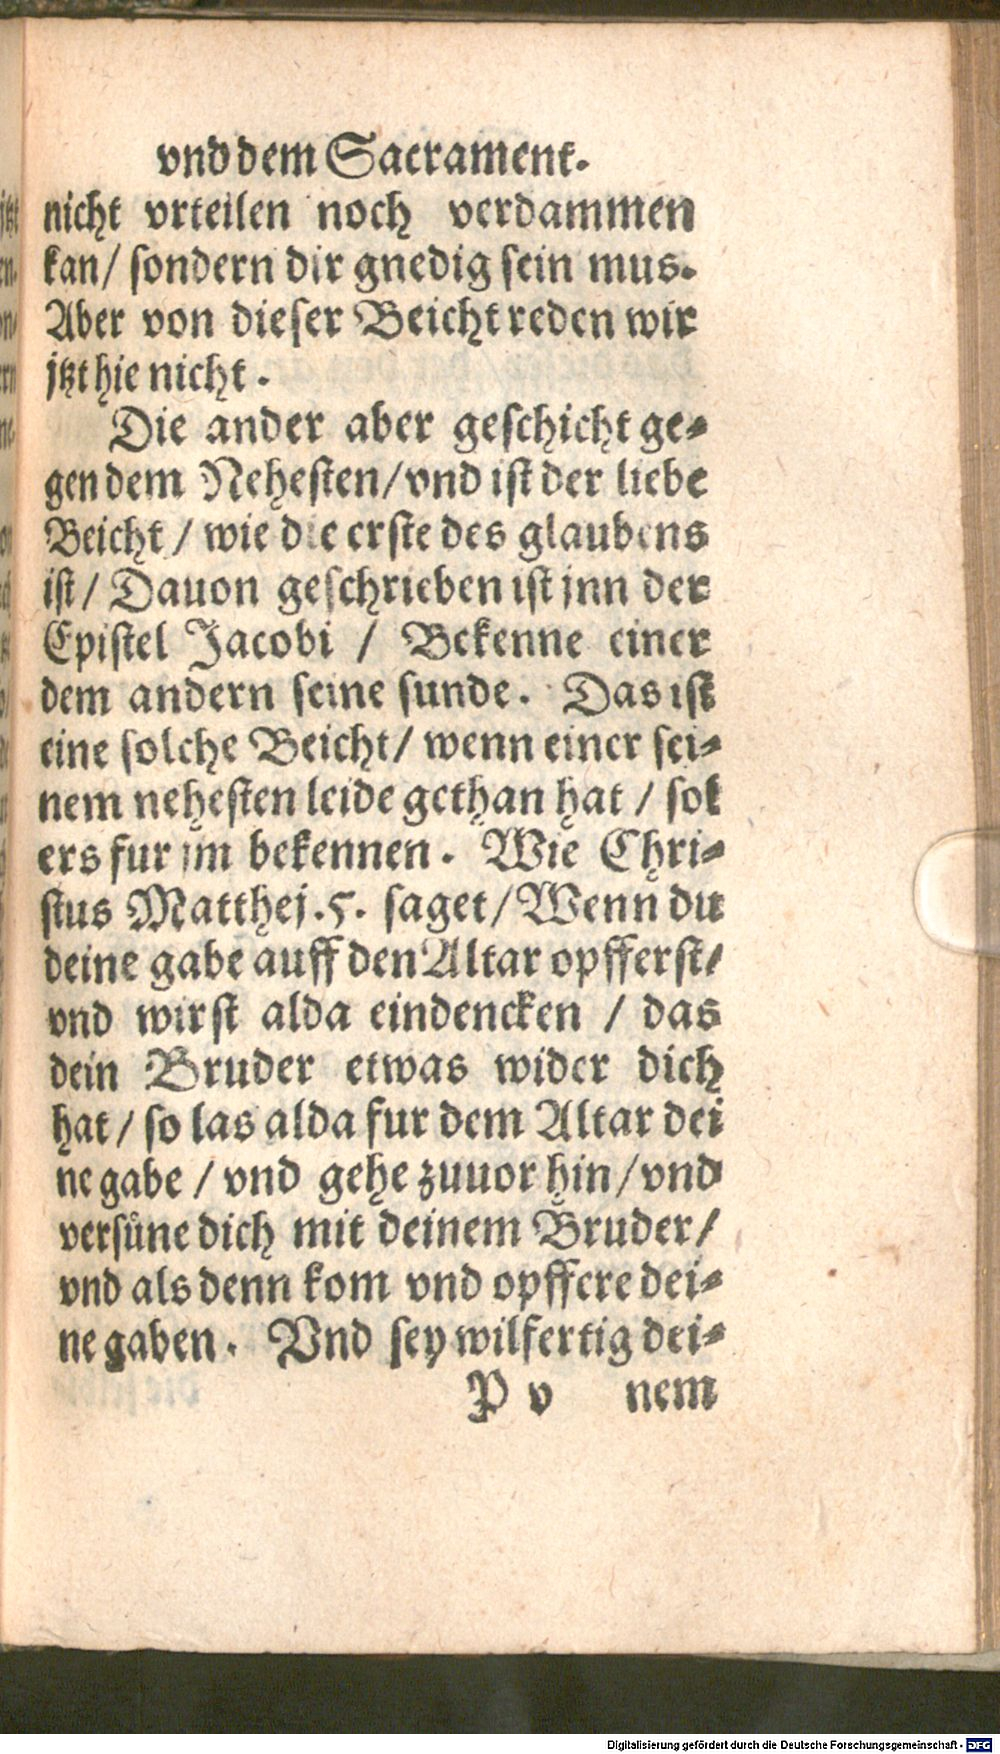 vnd dem Sacrament.
nicht vrteilen noch verdammen
kan/ sondern dir gnedig sein mus.
Aber von dieser Beicht reden wir
jtzt hie nicht.
Die ander aber geschicht ge-
gen dem Nehesten/vnd ist der liebe
Beicht / wie die erste des glaubens
ist/ Dauon geschrieben ist jnn der
Epistel Jacobi / Bekenne einer
dem andern seine sunde. Das ist
eine solche Beicht/ wenn einer sei-
nem nehesten leide gethan hat / sol
ers fur jm bekennen. Wie Chri-
stus Matthej.5. saget/Wenn du
deine gabe auff den Altar opfferst/
vnd wirst alda eindencken / das
dein Bruder etwas wider dich
hat/ so las alda fur dem Altar dei
ne gabe / vnd gehe zuuor hin/vnd
versüne dich mit deinem Bruder/
vnd als denn kom vnd opffere dei-
ne gaben. Vnd sey wilfertig dei-
P v nem
Digitalisierung gefördert durch die Deutsche Forschungsgemeinschaft - DFG